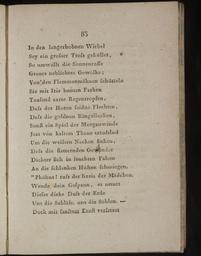 85
In den langerhobnen Wirbel
Sey ein grofser Trofs gehüllet,
So umwallt die Sonnenrosse
Graues nebliches Gewölke;
Von den Flammenmähnen schütteln
Sie mit Iris bunten Farben
Tausend zarte Regentropfen,
Dafs der Horen seidne Flechten,
Dafs die goldnen Ringellocken,
Sonst ein Spiel der Morgenwinde
Jezt von kaltem Thaue
Um die weifsen Nacken sinken;
Dafs die flatternden Gewänder
Dichter sich in feuchten Falten
An die schlanken Hüften schmiegen.
"Phöbus! ruft der Kreis der Mädchen,
Wende dein Gespann, es neuet
Dieser dicke Duft der Erde
Uns die Schläfe, uns die Sohlen. —
Doch mit sanftem Ernst versetzet